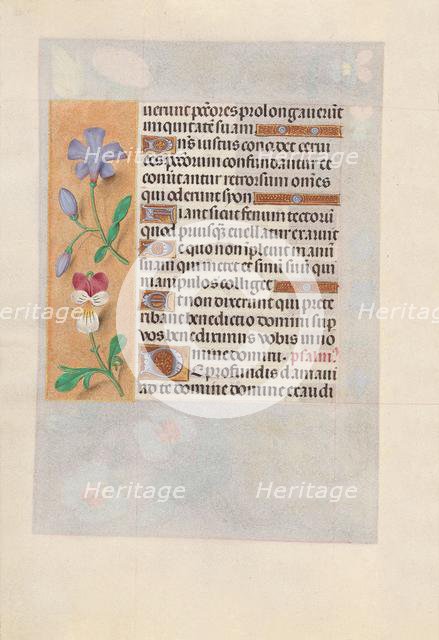 uerunt pctores prolongauerunt
iniquitatē suam
Dn̄s iustus concidet ceruices
pctorum confundantur et
conuertantur retrorsum om̄es
qui oderunt syon
Fiant sicut fenum tectorū
quod priusq̄ euellatur exaruit
De quo non impleuit manū
suam qui metet et sinū suū qui
manipulos colliget
Et non dixerunt qui prete
ribant benedictio domini sup
vos benediximus vobis in no
mine domini. psalm9
De profundis clamaui
ad te domine domine exaudi
Heritage Heritage
Heritage Heritage
Heritage Heritage